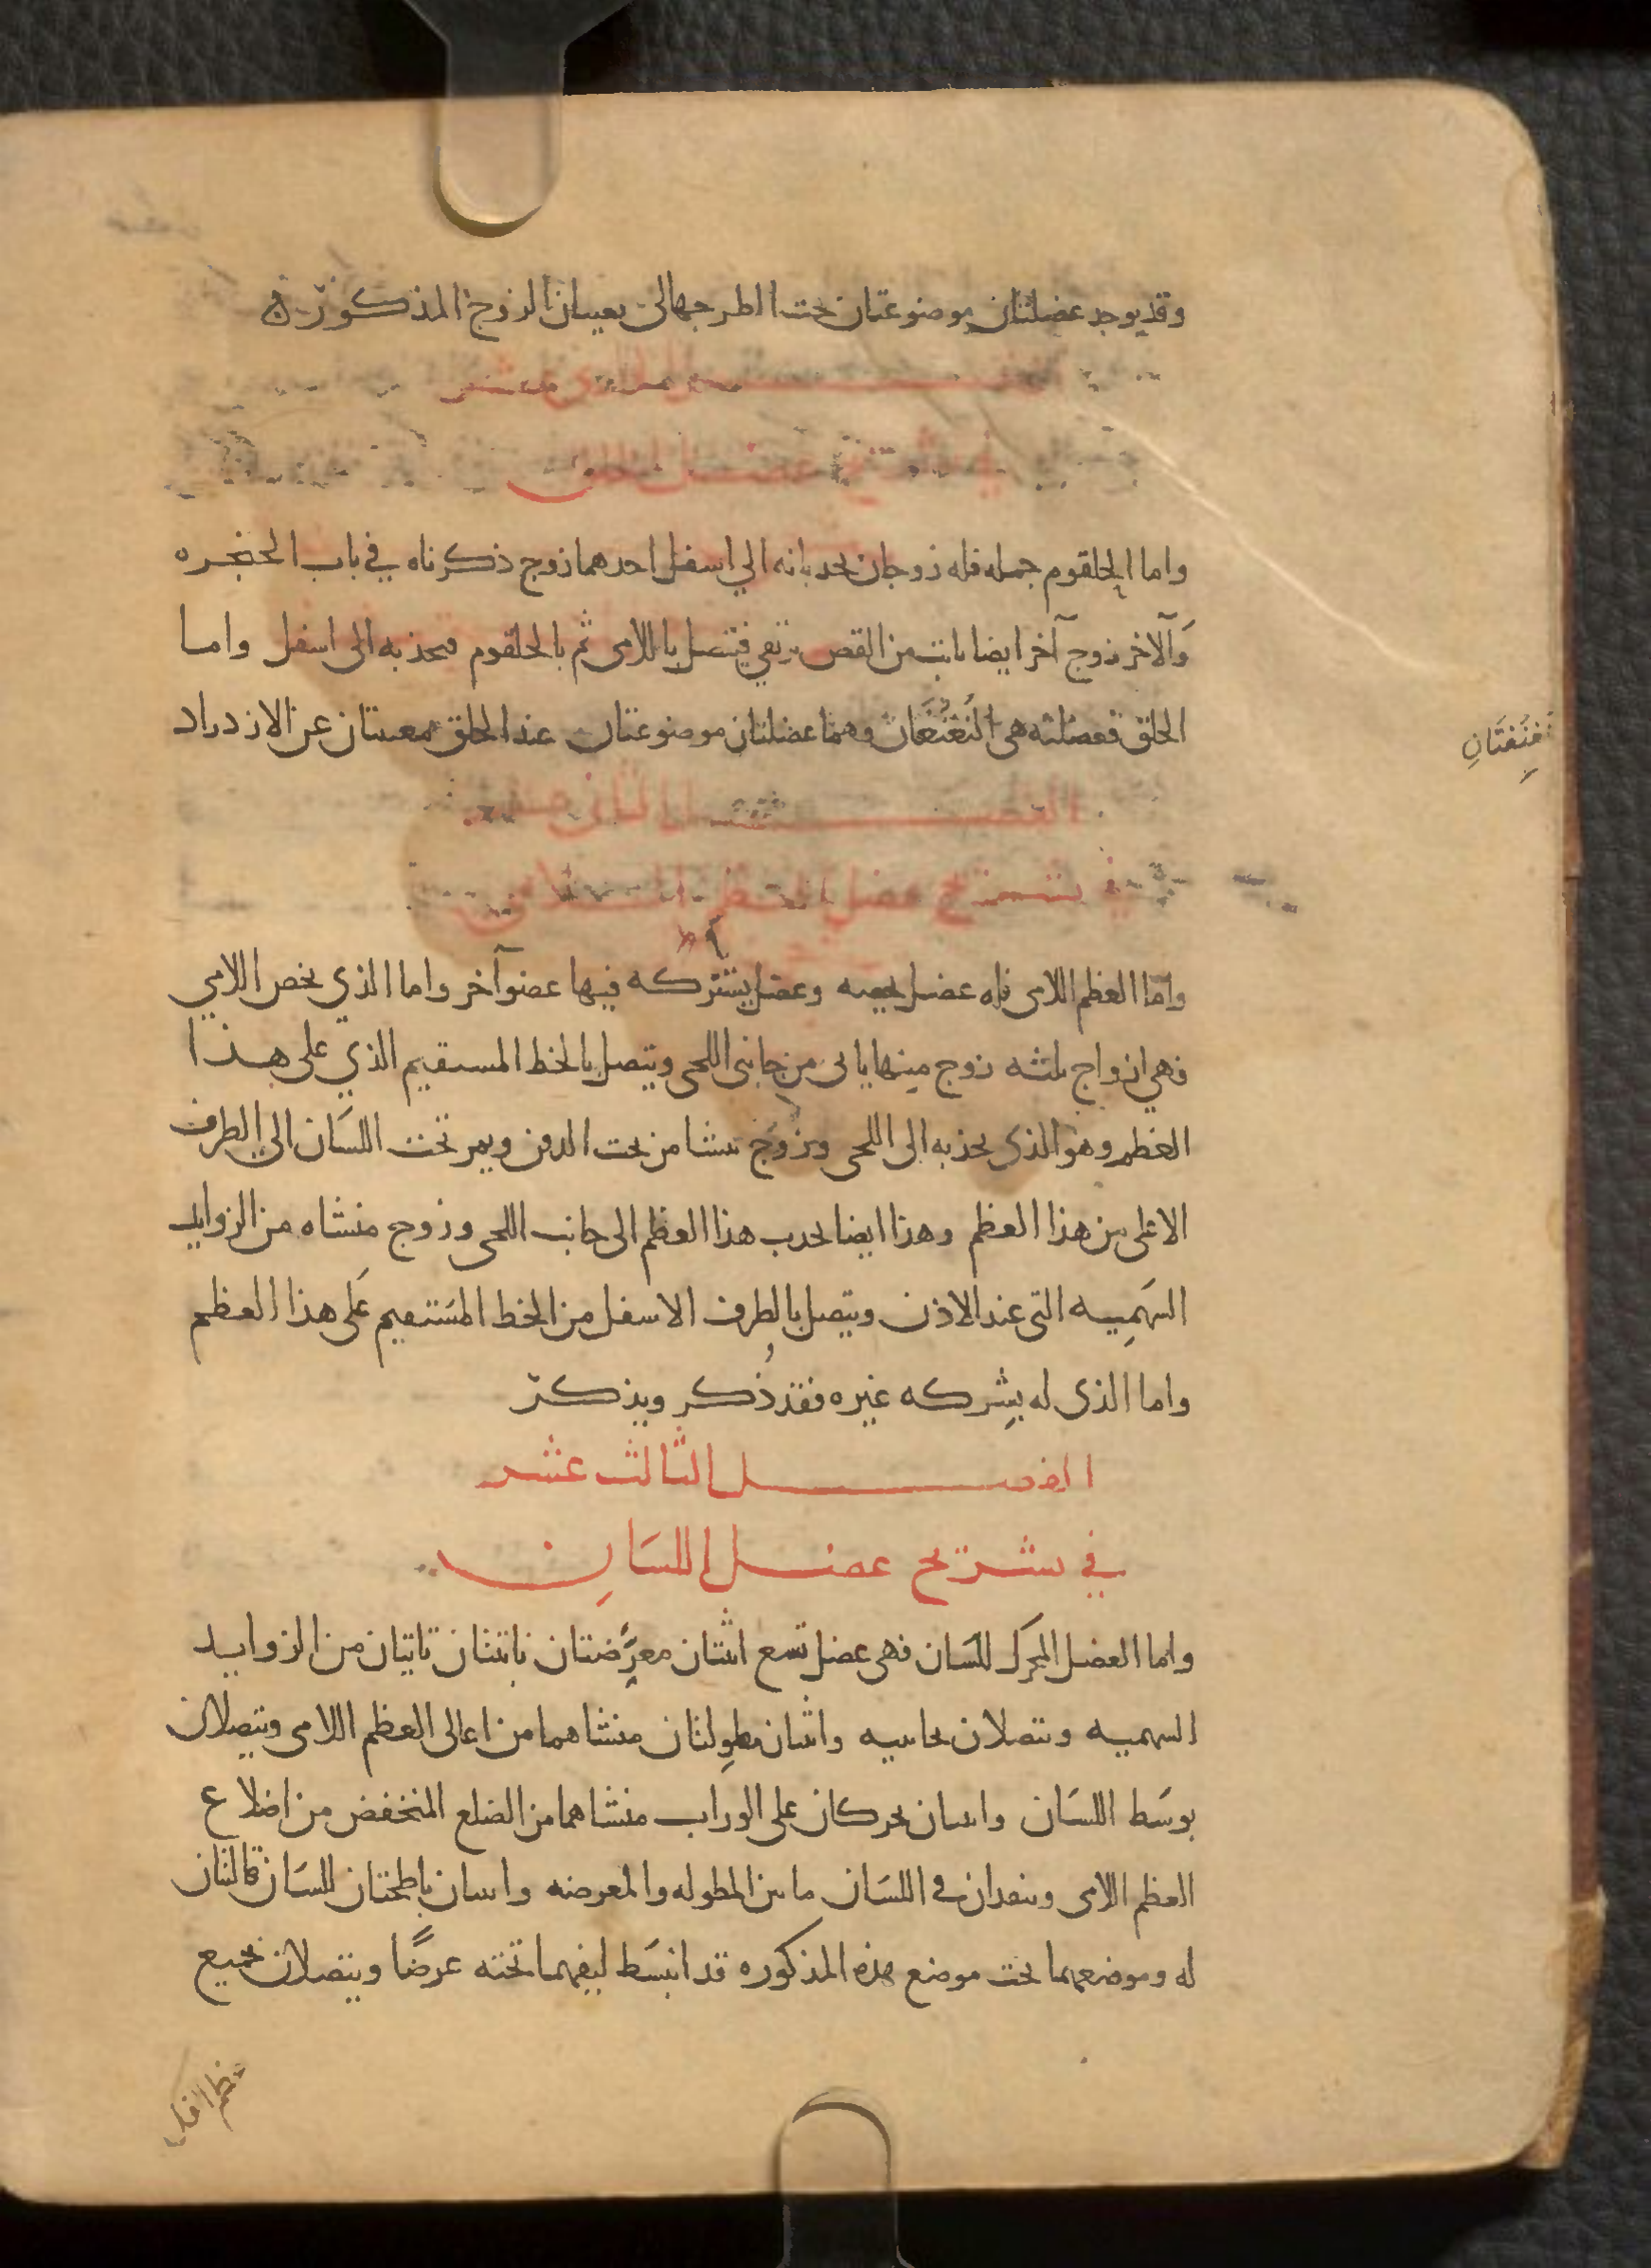 وقد يوجد عضلتان موضوعتان تحت الطرجهالى يعينان الزوج المذكور
الفصل الحادى عشر
في تشريح عضل الحلق
واما الحلقوم جمله فله زوجان يحدبانه الي اسفل احدهما زوج ذكرناه في باب الحنجره
وَآلاخر زوج آخر ايضا نابت من القص يرتقي فيتصل باللامى ثم بالحلقوم فيجذبه الى اسفل واما
الحلق فعضلته هى النُغنُغَتان وهما عضلتان موضوعتان عند الحلق معينتان عن الازدراد
نُغنُغَتَانِ
الفصل الثانى عشر
في تشريح عضل العظم اللامى
واما العظم اللامى فله عضل يخصه وعضل يشتركه فيها عضو آخر واما الذي يخص اللامي
فهي ازواج ثلثه زوج مينها ياتى من جانبى اللحى ويتصل بالخط المستقيم الذي على هذا
العظم وهو الذى يجذبه الى اللحى وزوج ينشا من تحت الدقن ويمر تحت اللسَان الي الطرف
الاعلى من هذا العظم وهذا ايضا يجدب هذا العظم الى جانب اللحى وزوج منشاه من الزوايد
السَهمِيه التى عند الاذن ويتصل بالطرف الاسفل من الخط المسَتقيم عَلى هذا العظم
واما الذى له يشركه غيره فقد ذُكر ويذكر
الفصل الثالث عشر
في تشريح عضل اللسَانِ
واما العضل المحرك للسَان فهى عضل تسع اثنتان معرّضتان ناتتان تاتيان من الزوايد
السهميه وتتصلان بجانبيه واثنان مطوِلتان منشاهما من اعالى العظم اللامى ويتصلان
بوسَط اللسَان واثنان يحركان على الوراب منشاهما من الضلع المنخفض من اضلاع
العظم اللامى وينفدان في اللسَان ما بين المطوله والمعرضه واثنان باطحتان للسَان قالبتان
له وموضعهما تحت موضع هذه المذكوره قد انبسَط ليفهما تحته عرضًا ويتصلان بجميع
عظم الفك